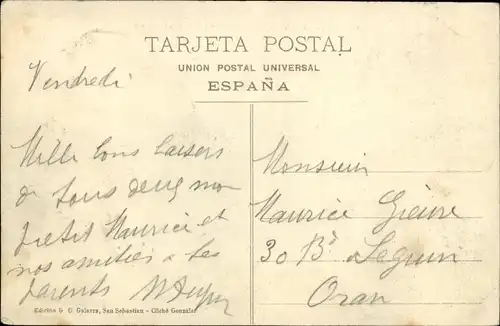 TARJETA POSTAL
UNION POSTAL UNIVERSAL
ESPAÑA
Vendredi
Mille bons baisers
de tous deux mon
petit Maurice et
nos amitiés à tes
parents
Monsieur
Maurice
30 Bd Seguin
Oran
G. Galarza, San Sebastian - Cliché Gonzalez